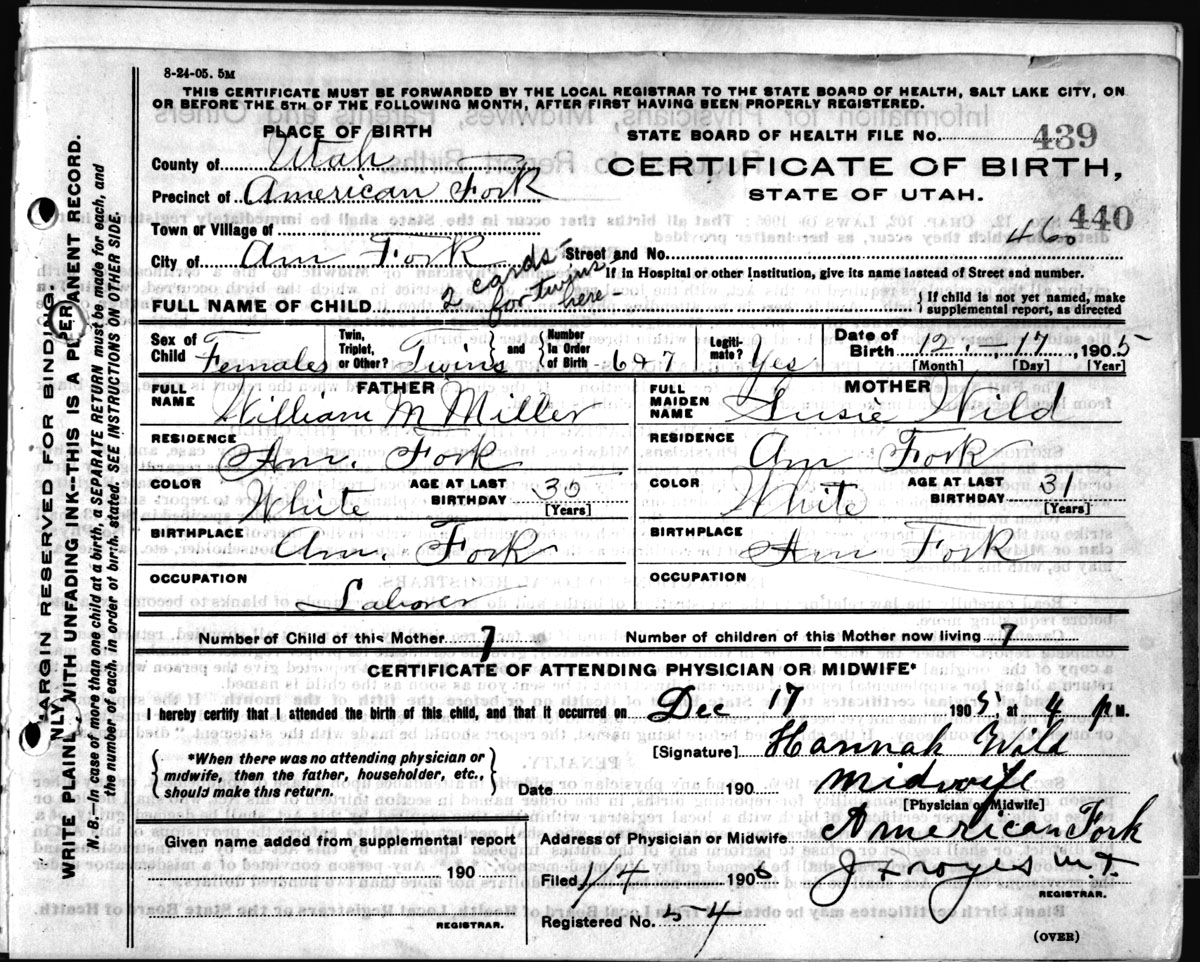 8-24-05. 5M
THIS CERTIFICATE MUST BE FORWARDED BY THE LOCAL REGISTRAR TO THE STATE BOARD OF HEALTH, SALT LAKE CITY, ON
OR BEFORE THE 5TH OF THE FOLLOWING MONTH, AFTER FIRST HAVING BEEN PROPERLY REGISTERED.
PLACE OF BIRTH
STATE BOARD OF HEALTH FILE No. 439
County of Utah
CERTIFICATE OF BIRTH,
Precinct of American Fork
STATE OF UTAH.
440
Town or Village of
City of Am Fork Street and No. 46
If in Hospital or other Institution, give its name instead of Street and number.
FULL NAME OF CHILD 2 cards for twins here
If child is not yet named, make supplemental report, as directed
Sex of Child Females Twin, Triplet, or Other? Twins and Number In Order of Birth 6 & 7 Legiti-mate? Yes Date of Birth 12 - 17, 1905
[Month] [Day] [Year]
FATHER
FULL NAME William M Miller
RESIDENCE
Am. Fork
COLOR White AGE AT LAST BIRTHDAY
[Years]
BIRTHPLACE
Am. Fork
OCCUPATION
Laborer
MOTHER
FULL MAIDEN NAME Susie Wild
RESIDENCE
Am Fork
COLOR White AGE AT LAST BIRTHDAY 31
[Years]
BIRTHPLACE
Am Fork
OCCUPATION
Number of Child of this Mother 7 Number of children of this Mother now living 7
CERTIFICATE OF ATTENDING PHYSICIAN OR MIDWIFE*
I hereby certify that I attended the birth of this child, and that it occurred on Dec 17 1905, at 4 P M.
*When there was no attending physician or midwife, then the father, householder, etc., should make this return.
[Signature] Hannah Wild
Date 190 Midwife
[Physician or Midwife]
Given name added from supplemental report
190
REGISTRAR.
Address of Physician or Midwife American Fork
Filed 1/4 1906
REGISTRAR.
Registered No. 54
(OVER)
MARGIN RESERVED FOR BINDING.
WRITE PLAINLY, WITH UNFADING INK—THIS IS A PERMANENT RECORD.
N. B.—In case of more than one child at a birth, a SEPARATE RETURN must be made for each, and
the number of each, in order of birth, stated. SEE INSTRUCTIONS ON OTHER SIDE.